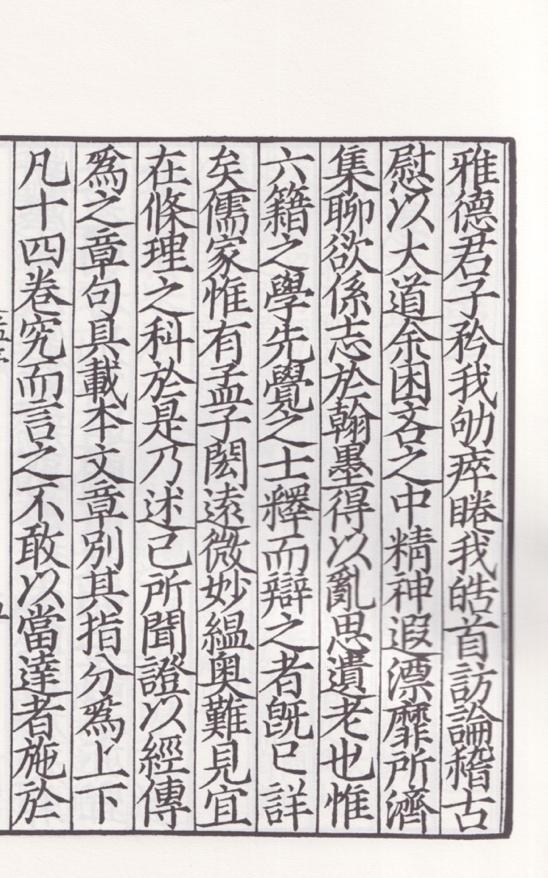 雅德君子矜我劬瘁睠我皓首訪論稽古
慰以大道余困吝之中精神遐漂靡所濟
集聊欲係志於翰墨得以亂思遺老也惟
六籍之學先覺之士釋而辯之者旣已詳
矣儒家惟有孟子閎遠微妙縕奧難見宜
在條理之科於是乃述己所聞證以經傳
爲之章句具載本文章別其指分爲上下
凡十四卷究而言之不敢以當達者施於